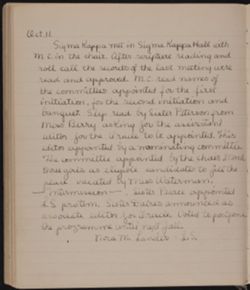 Oct. 11
Sigma Kappa met in Sigma Kappa Hall with
M.C. in the chair. After scripture reading and
roll call the records of the last meeting were
read and approved. M.C. read names of
the committees appointed for the first
initiation, for the second initiation and
banquet. read by Sister from
Miss asking for the assistant
editor for the to be appointed. This
editor appointed by a nominating committee.
The committee appointed by the chair
as eligible candidate to fill the
place vacated by Miss Waterman.
Intermission — Sister appointed
L.S. protem. Sister announced as
associate editor for Vote to postpone
the programme until next fall.
L.S.